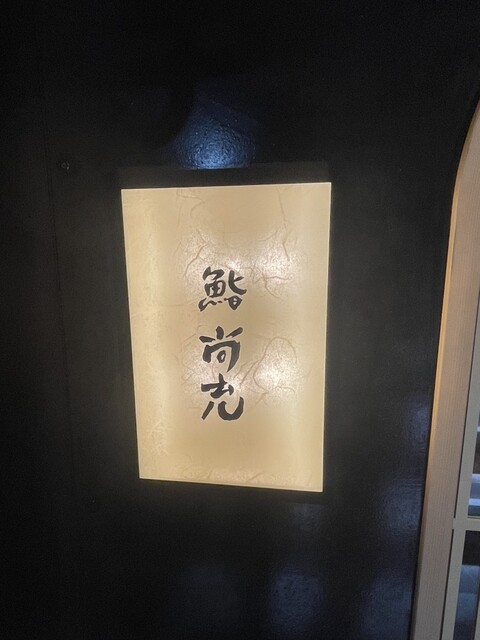 鮨尚充